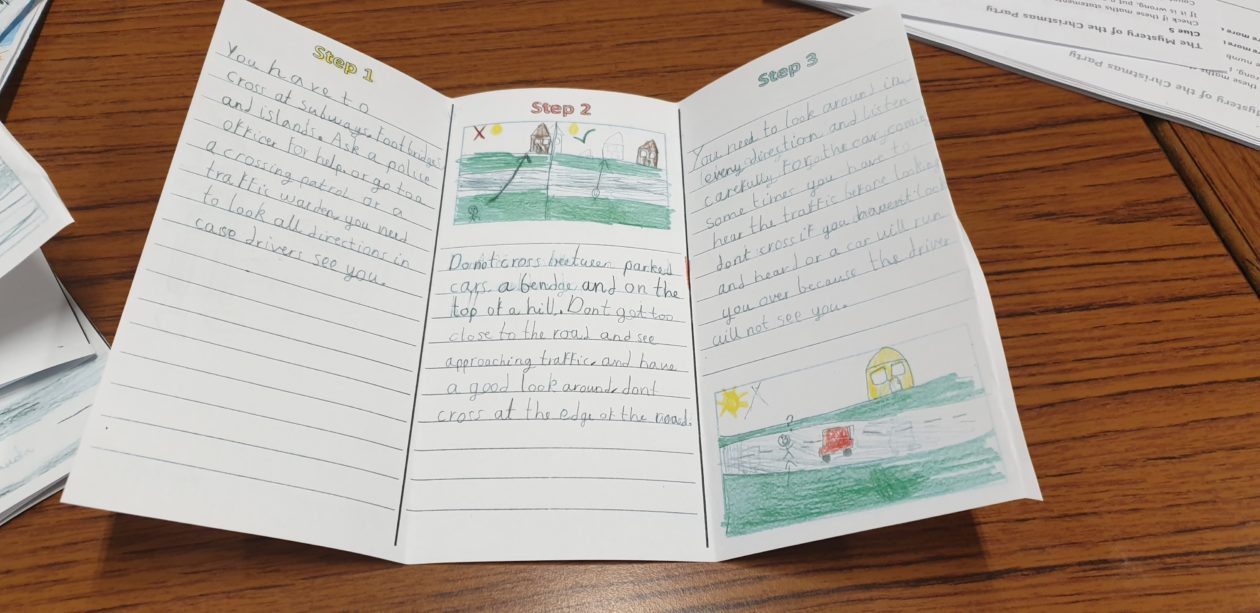 Step 1
You have to
cross at subways. Footbridges
and islands. Ask a police
officer for help. or go too
a crossing patrol or a
traffic warden you need
to look all directions in
case drivers see you.
Step 2
Do not cross beetween parked
cars a bendge and on the
top of a hill. Dont got too
close to the road and see
approaching traffic. and have
a good look around. dont
cross at the edge of the road.
Step 3
You need to look around in
every direction and listen
carefully. For the car comin
some times you have to
hear the traffic before looking
dont cross if you havent look
and heard or a car will run
you over because the driver
will not see you.
?
The Mystery of the Christmas Party
Clue 5
Check if these maths statements
If it is wrong, put a
Mystery of the Christmas Party